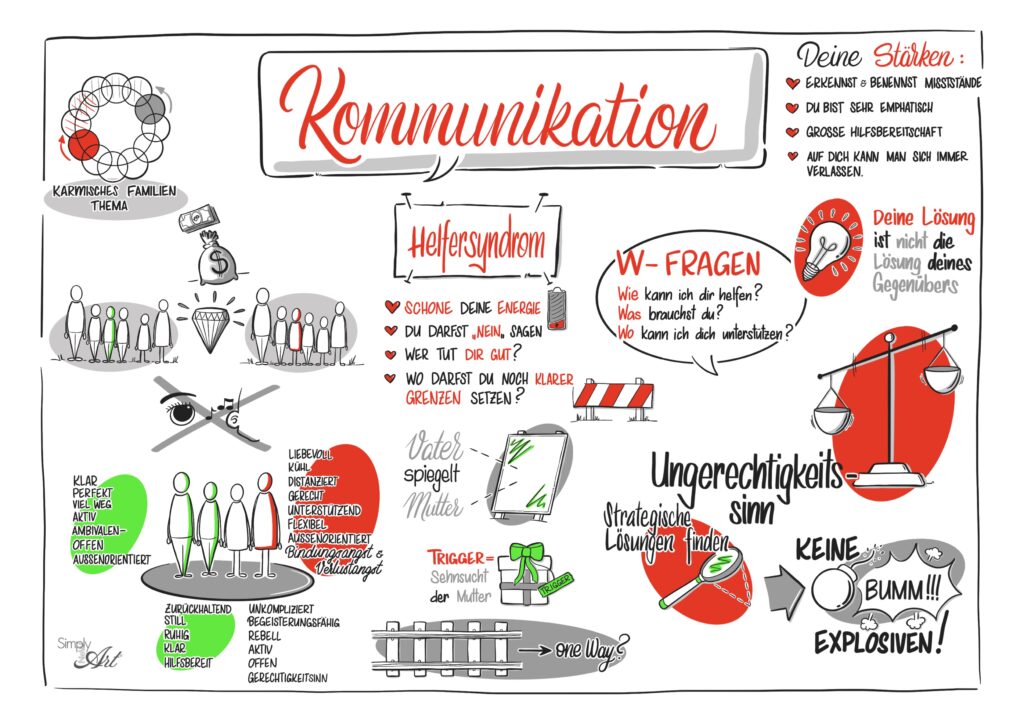 Kommunikation
Deine Stärken:
ERKENNST & BENENNST MISSTSTÄNDE
DU BIST SEHR EMPHATISCH
GROSSE HILFSBEREITSCHAFT
AUF DICH KANN MAN SICH IMMER
VERLASSEN.
KARMISCHES FAMILIEN
THEMA
$
Helfersyndrom
SCHONE DEINE ENERGIE
DU DARFST „NEIN„ SAGEN
WER TUT DIR GUT?
WO DARFST DU NOCH KLARER
GRENZEN SETZEN?
W-FRAGEN
Wie kann ich dir helfen?
Was brauchst du?
Wo kann ich dich unterstützen?
Deine Lösung
ist nicht die
Lösung deines
Gegenübers
Vater
spiegelt
Mutter
Ungerechtigkeits-
sinn
Strategische
Lösungen finden
KLAR
PERFEKT
VIEL WEG
AKTIV
AMBIVALEN-
OFFEN
AUSSENORIENTIERT
LIEBEVOLL
KÜHL
DISTANZIERT
GERECHT
UNTERSTÜTZEND
FLEXIBEL
AUSSENORIENTIERT
Bindungsangst &
Verlustangst
TRIGGER=
Sehnsucht
der Mutter
TRIGGER
KEINE
BUMM!!!
EXPLOSIVEN!
ZURÜCKHALTEND
STILL
RUHIG
KLAR
HILFSBEREIT
UNKOMPLIZIERT
BEGEISTERUNGSFÄHIG
REBELL
AKTIV
OFFEN
GERECHTIGKEITSINN
one Way?
Simply
Art